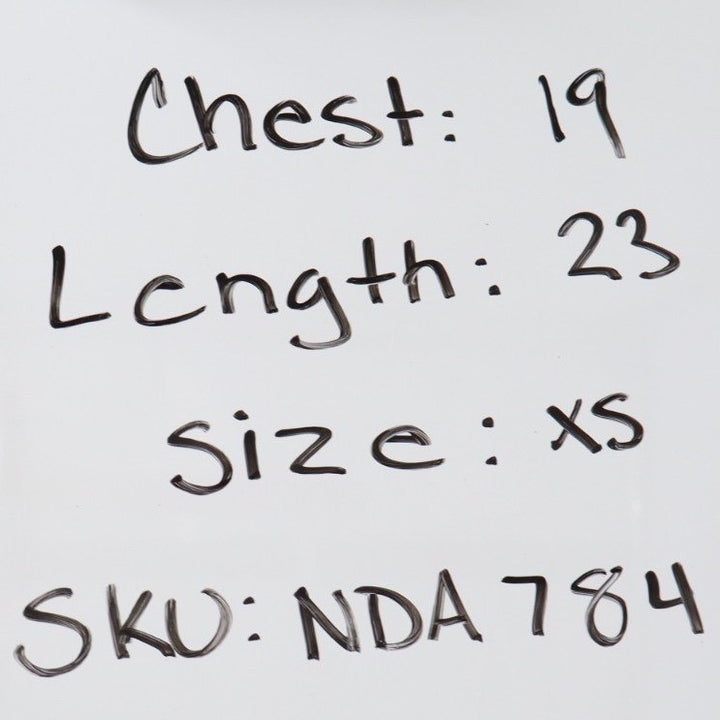 Chest: 19
Length: 23
Size: XS
SKU: NDA 784